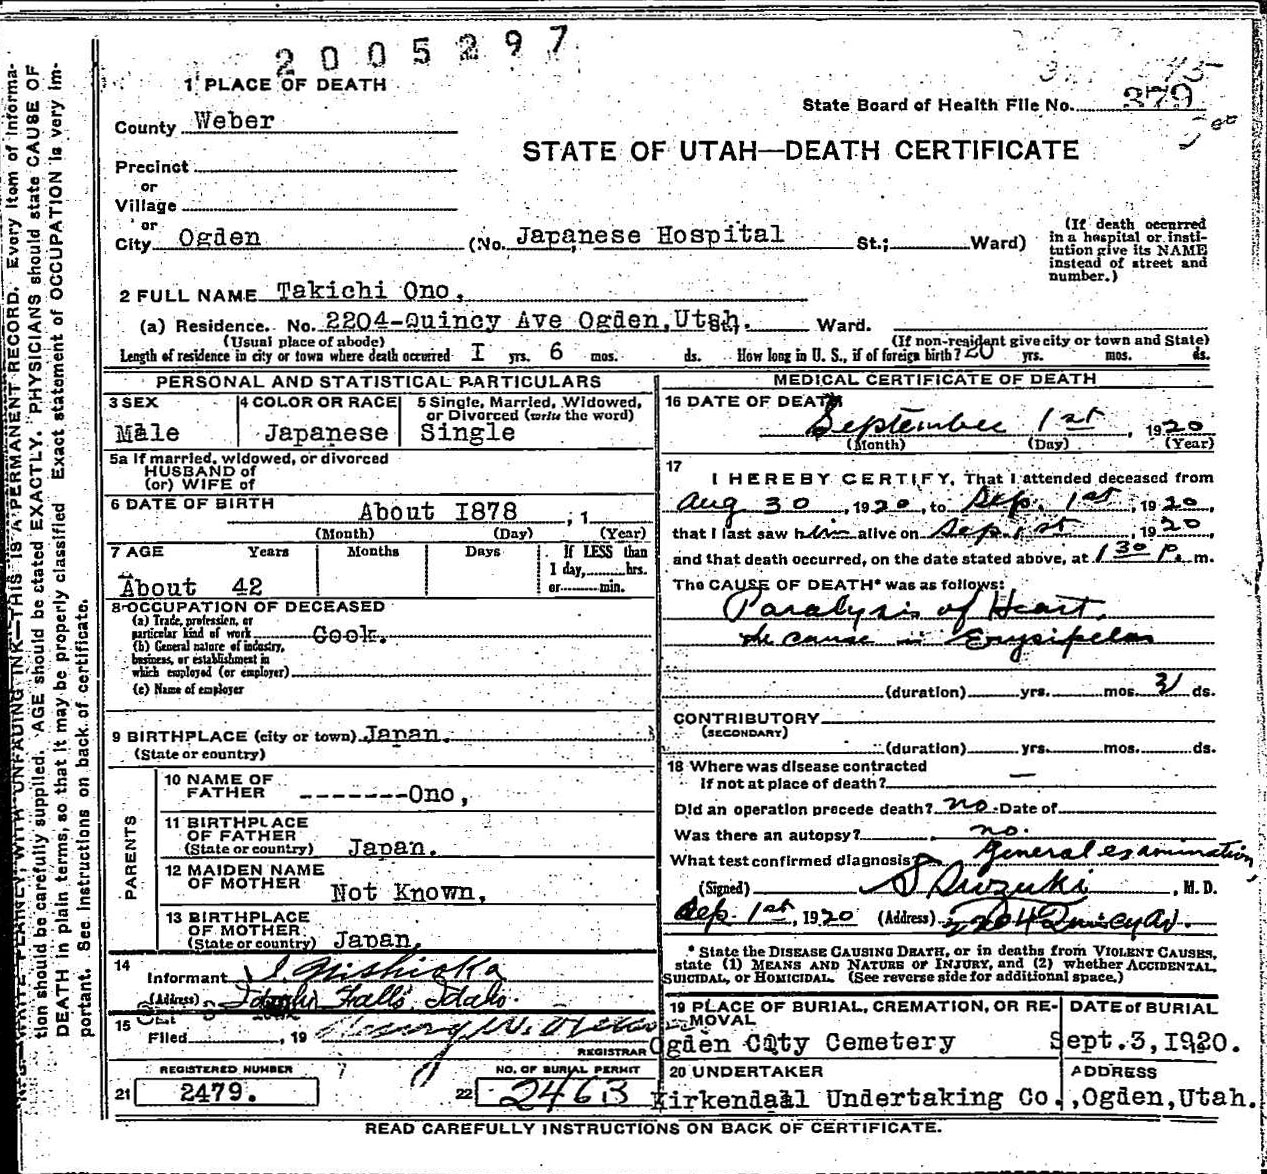 2005297
1 PLACE OF DEATH
State Board of Health File No. 379
County Weber
STATE OF UTAH—DEATH CERTIFICATE
Precinct
or
Village
or
City Ogden (No. Japanese Hospital St.; Ward)
(If death occurred in a hospital or institution give its NAME instead of street and number.)
2 FULL NAME Takichi Ono,
(a) Residence. No. 2204-Quincy Ave Ogden,Utah. Ward.
(Usual place of abode) (If non-resident give city or town and State)
Length of residence in city or town where death occurred I yrs. 6 mos. ds. How long in U. S., if of foreign birth? 20 yrs. mos. ds.
PERSONAL AND STATISTICAL PARTICULARS
3 SEX
Male
4 COLOR OR RACE
Japanese
5 Single, Married, Widowed, or Divorced (write the word)
Single
5a If married, widowed, or divorced
HUSBAND of
(or) WIFE of
6 DATE OF BIRTH About I878 , 1
(Month) (Day) (Year)
7 AGE Years Months Days If LESS than
1 day, hrs.
or min.
About 42
8 OCCUPATION OF DECEASED
(a) Trade, profession, or
particular kind of work Cook.
(b) General nature of industry,
business, or establishment in
which employed (or employer)
(c) Name of employer
9 BIRTHPLACE (city or town) Japan.
(State or country)
PARENTS
10 NAME OF FATHER -------Ono,
11 BIRTHPLACE OF FATHER
(State or country) Japan.
12 MAIDEN NAME OF MOTHER Not Known,
13 BIRTHPLACE OF MOTHER
(State or country) Japan,
14 Informant I Nishioka
(Address) Idaho Falls Idaho.
15 Filed , 19
REGISTRAR
REGISTERED NUMBER
21 2479.
NO. OF BURIAL PERMIT
22 2463
MEDICAL CERTIFICATE OF DEATH
16 DATE OF DEATH
September 1st , 1920
(Month) (Day) (Year)
17 I HEREBY CERTIFY, That I attended deceased from
Aug 30 , 1920, to Sep. 1st , 1920,
that I last saw him alive on Sep. 1st , 1920,
and that death occurred, on the date stated above, at 1 30 P. m.
The CAUSE OF DEATH* was as follows:
Paralysis of Heart.
the cause is Erysipelas
(duration) yrs. mos. ds.
CONTRIBUTORY
(SECONDARY)
(duration) yrs. mos. ds.
18 Where was disease contracted
If not at place of death? —
Did an operation precede death? no. Date of
Was there an autopsy? no.
What test confirmed diagnosis? General examination,
(Signed) S Suzuki , M. D.
Sep. 1st, 1920 (Address) 2204 Quincy Av.
* State the DISEASE CAUSING DEATH, or in deaths from VIOLENT CAUSES,
state (1) MEANS AND NATURE OF INJURY, and (2) whether ACCIDENTAL,
SUICIDAL, or HOMICIDAL. (See reverse side for additional space.)
19 PLACE OF BURIAL, CREMATION, OR REMOVAL
Ogden City Cemetery
DATE of BURIAL
Sept.3,I920.
20 UNDERTAKER
Kirkendall Undertaking Co.
ADDRESS
,Ogden,Utah.
READ CAREFULLY INSTRUCTIONS ON BACK OF CERTIFICATE.
WRITE PLAINLY, WITH UNFADING INK—THIS IS A PERMANENT RECORD. Every item of informa-
tion should be carefully supplied. AGE should be stated EXACTLY. PHYSICIANS should state CAUSE OF
DEATH in plain terms, so that it may be properly classified. Exact statement of OCCUPATION is very im-
portant. See instructions on back of certificate.